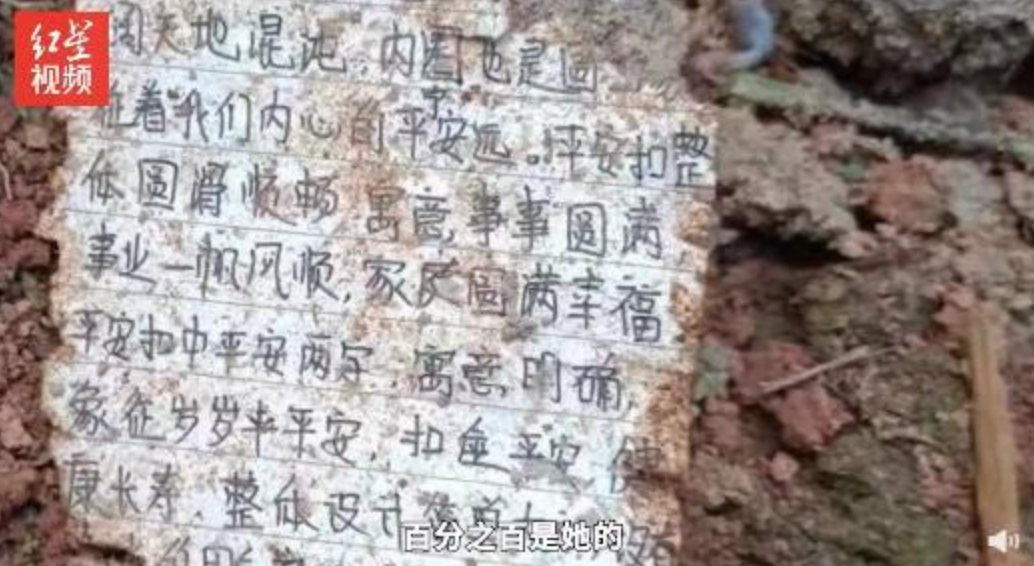 红星
视频
天地混沌,内圈也是圆
着我们内心的平安宁远。平安扣整
体圆滑顺畅 寓意事事圆满
事业一帆风顺,家庭圆满幸福
平安扣中平安两字,寓意明确,
象征岁岁平安,扣连平安 健
康长寿,整体设计简单
百分之百是她的